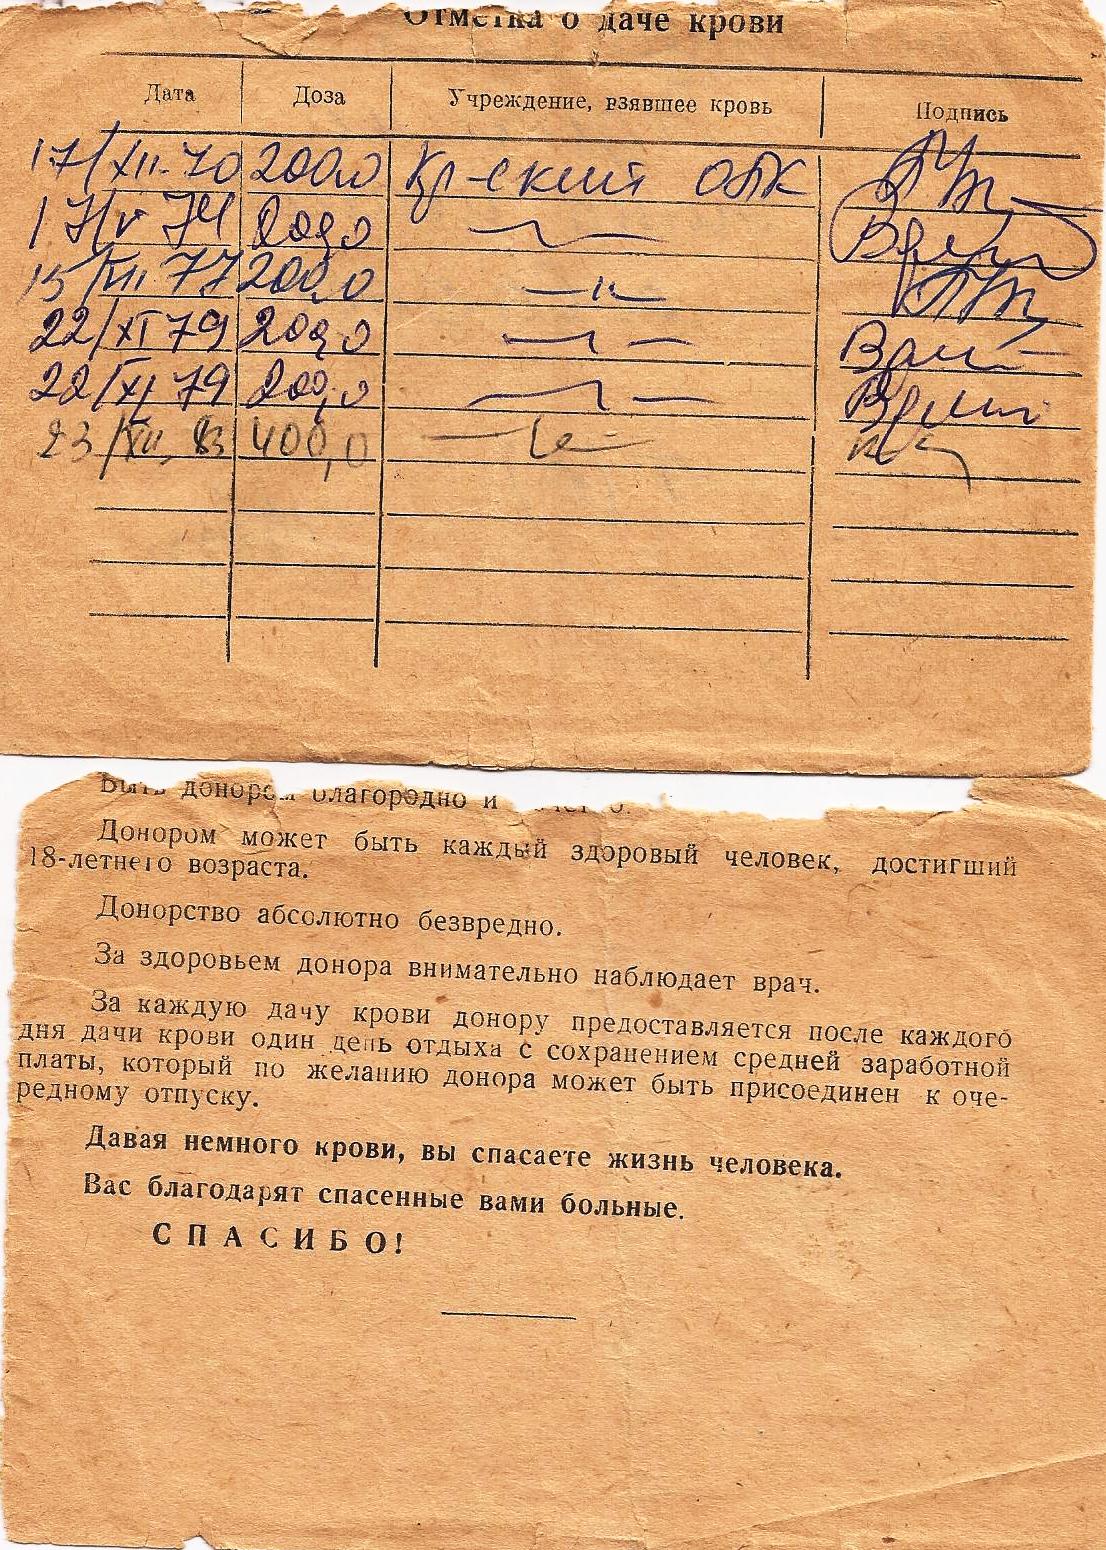 Отметка о даче крови
Дата Доза Учреждение, взявшее кровь Подпись
17/XII-70 200,0
17/V 74 200,0
15/XII 77 200,0 -"-
22/XI 79 200,0 -"-
22/XI 79 200,0 -"-
23/XII, 83 400,0 -"-
Быть донором благородно и
Донором может быть каждый здоровый человек, достигший
18-летнего возраста.
Донорство абсолютно безвредно.
За здоровьем донора внимательно наблюдает врач.
За каждую дачу крови донору предоставляется после каждого
дня дачи крови один день отдыха с сохранением средней заработной
платы, который по желанию донора может быть присоединен к оче-
редному отпуску.
Давая немного крови, вы спасаете жизнь человека.
Вас благодарят спасенные вами больные.
СПАСИБО!